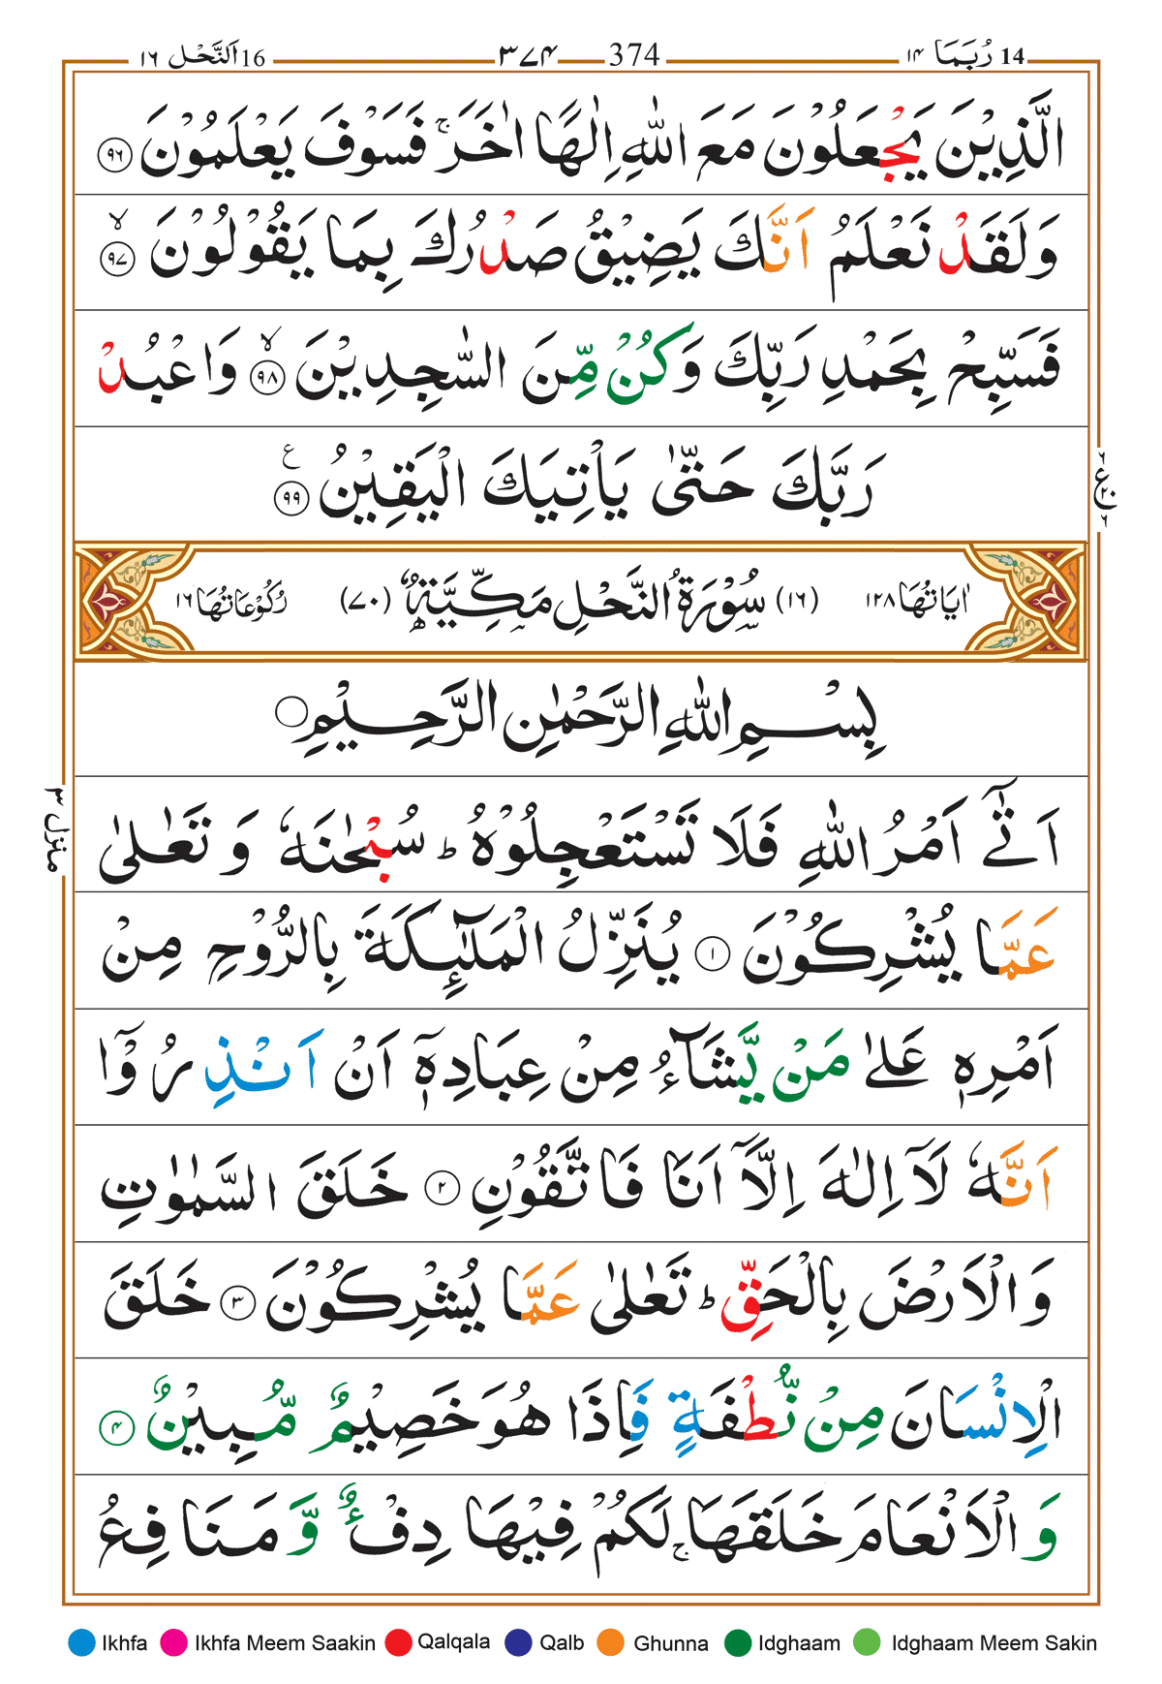 14 رُبَمَا ١٤
374 ٣٧٤
16 اَلنَّحْل ١٦
الَّذِيْنَ يَجْعَلُوْنَ مَعَ اللّٰهِ اِلٰهًا اٰخَرَ ۚ فَسَوْفَ يَعْلَمُوْنَ ٩٦
وَلَقَدْ نَعْلَمُ اَنَّكَ يَضِيْقُ صَدْرُكَ بِمَا يَقُوْلُوْنَ ۙ ٩٧
فَسَبِّحْ بِحَمْدِ رَبِّكَ وَكُنْ مِّنَ السّٰجِدِيْنَ ۙ ٩٨ وَاعْبُدْ
رَبَّكَ حَتّٰى يَاْتِيَكَ الْيَقِيْنُ ع ٩٩
اٰيَاتُهَا ١٢٨ (١٦) سُوْرَةُ النَّحْلِ مَكِّيَّةٌ (٧٠) رُكُوْعَاتُهَا ١٦
بِسْمِ اللّٰهِ الرَّحْمٰنِ الرَّحِيْمِ
اَتٰٓى اَمْرُ اللّٰهِ فَلَا تَسْتَعْجِلُوْهُ ؕ سُبْحٰنَهٗ وَ تَعٰلٰى
عَمَّا يُشْرِكُوْنَ ١ يُنَزِّلُ الْمَلٰٓئِكَةَ بِالرُّوْحِ مِنْ
اَمْرِهٖ عَلٰى مَنْ يَّشَآءُ مِنْ عِبَادِهٖٓ اَنْ اَنْذِرُوْٓا
اَنَّهٗ لَآ اِلٰهَ اِلَّآ اَنَا فَاتَّقُوْنِ ٢ خَلَقَ السَّمٰوٰتِ
وَالْاَرْضَ بِالْحَقِّ ؕ تَعٰلٰى عَمَّا يُشْرِكُوْنَ ٣ خَلَقَ
الْاِنْسَانَ مِنْ نُّطْفَةٍ فَاِذَا هُوَ خَصِيْمٌ مُّبِيْنٌ ٤
وَالْاَنْعَامَ خَلَقَهَا ۚ لَكُمْ فِيْهَا دِفْءٌ وَّ مَنَافِعُ
منزل ٣
Ikhfa Ikhfa Meem Saakin Qalqala Qalb Ghunna Idghaam Idghaam Meem Sakin